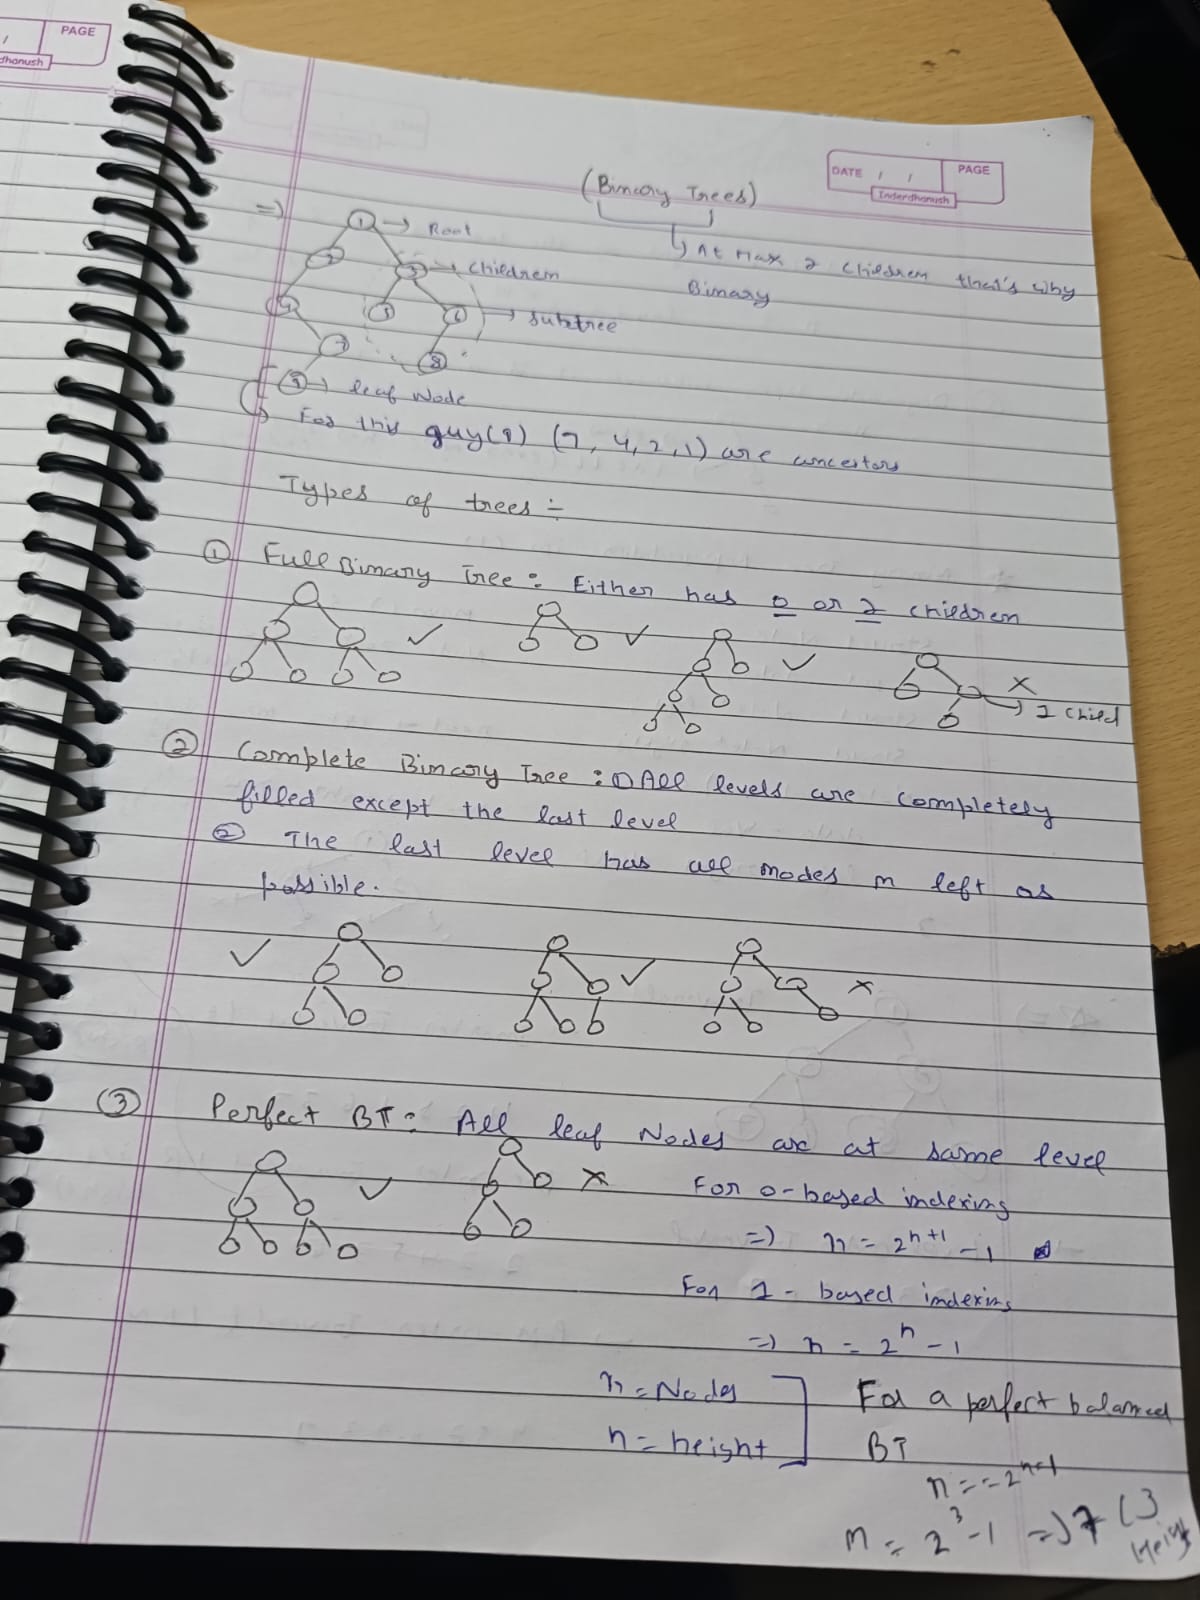 PAGE
dhanush
DATE / / PAGE
Inderdhanush
(Binary Trees)
=) 1 → Root
At Max 2 children that's why
Binary
2 3 → children
4 5 6 → subtree
7 8
9 → leaf Node
For this guy(9) (7, 4, 2, 1) are ancestors
Types of trees :-
① Full Binary Tree : Either has 0 or 2 children
✓ ✓ ✓ x
→ 1 child
② Complete Binary Tree : ① All levels are completely
filled except the last level
② The last level has all nodes in left as
possible.
✓ ✓ x
③ Perfect BT : All leaf Nodes are at same level
✓ x For 0-based indexing
=) n = 2^{h+1} - 1
For 1 - based indexing
=) n = 2^h - 1
n = Nodes
h = height
For a perfect balanced
BT
n = 2^3 - 1 =) 7 (3
Height